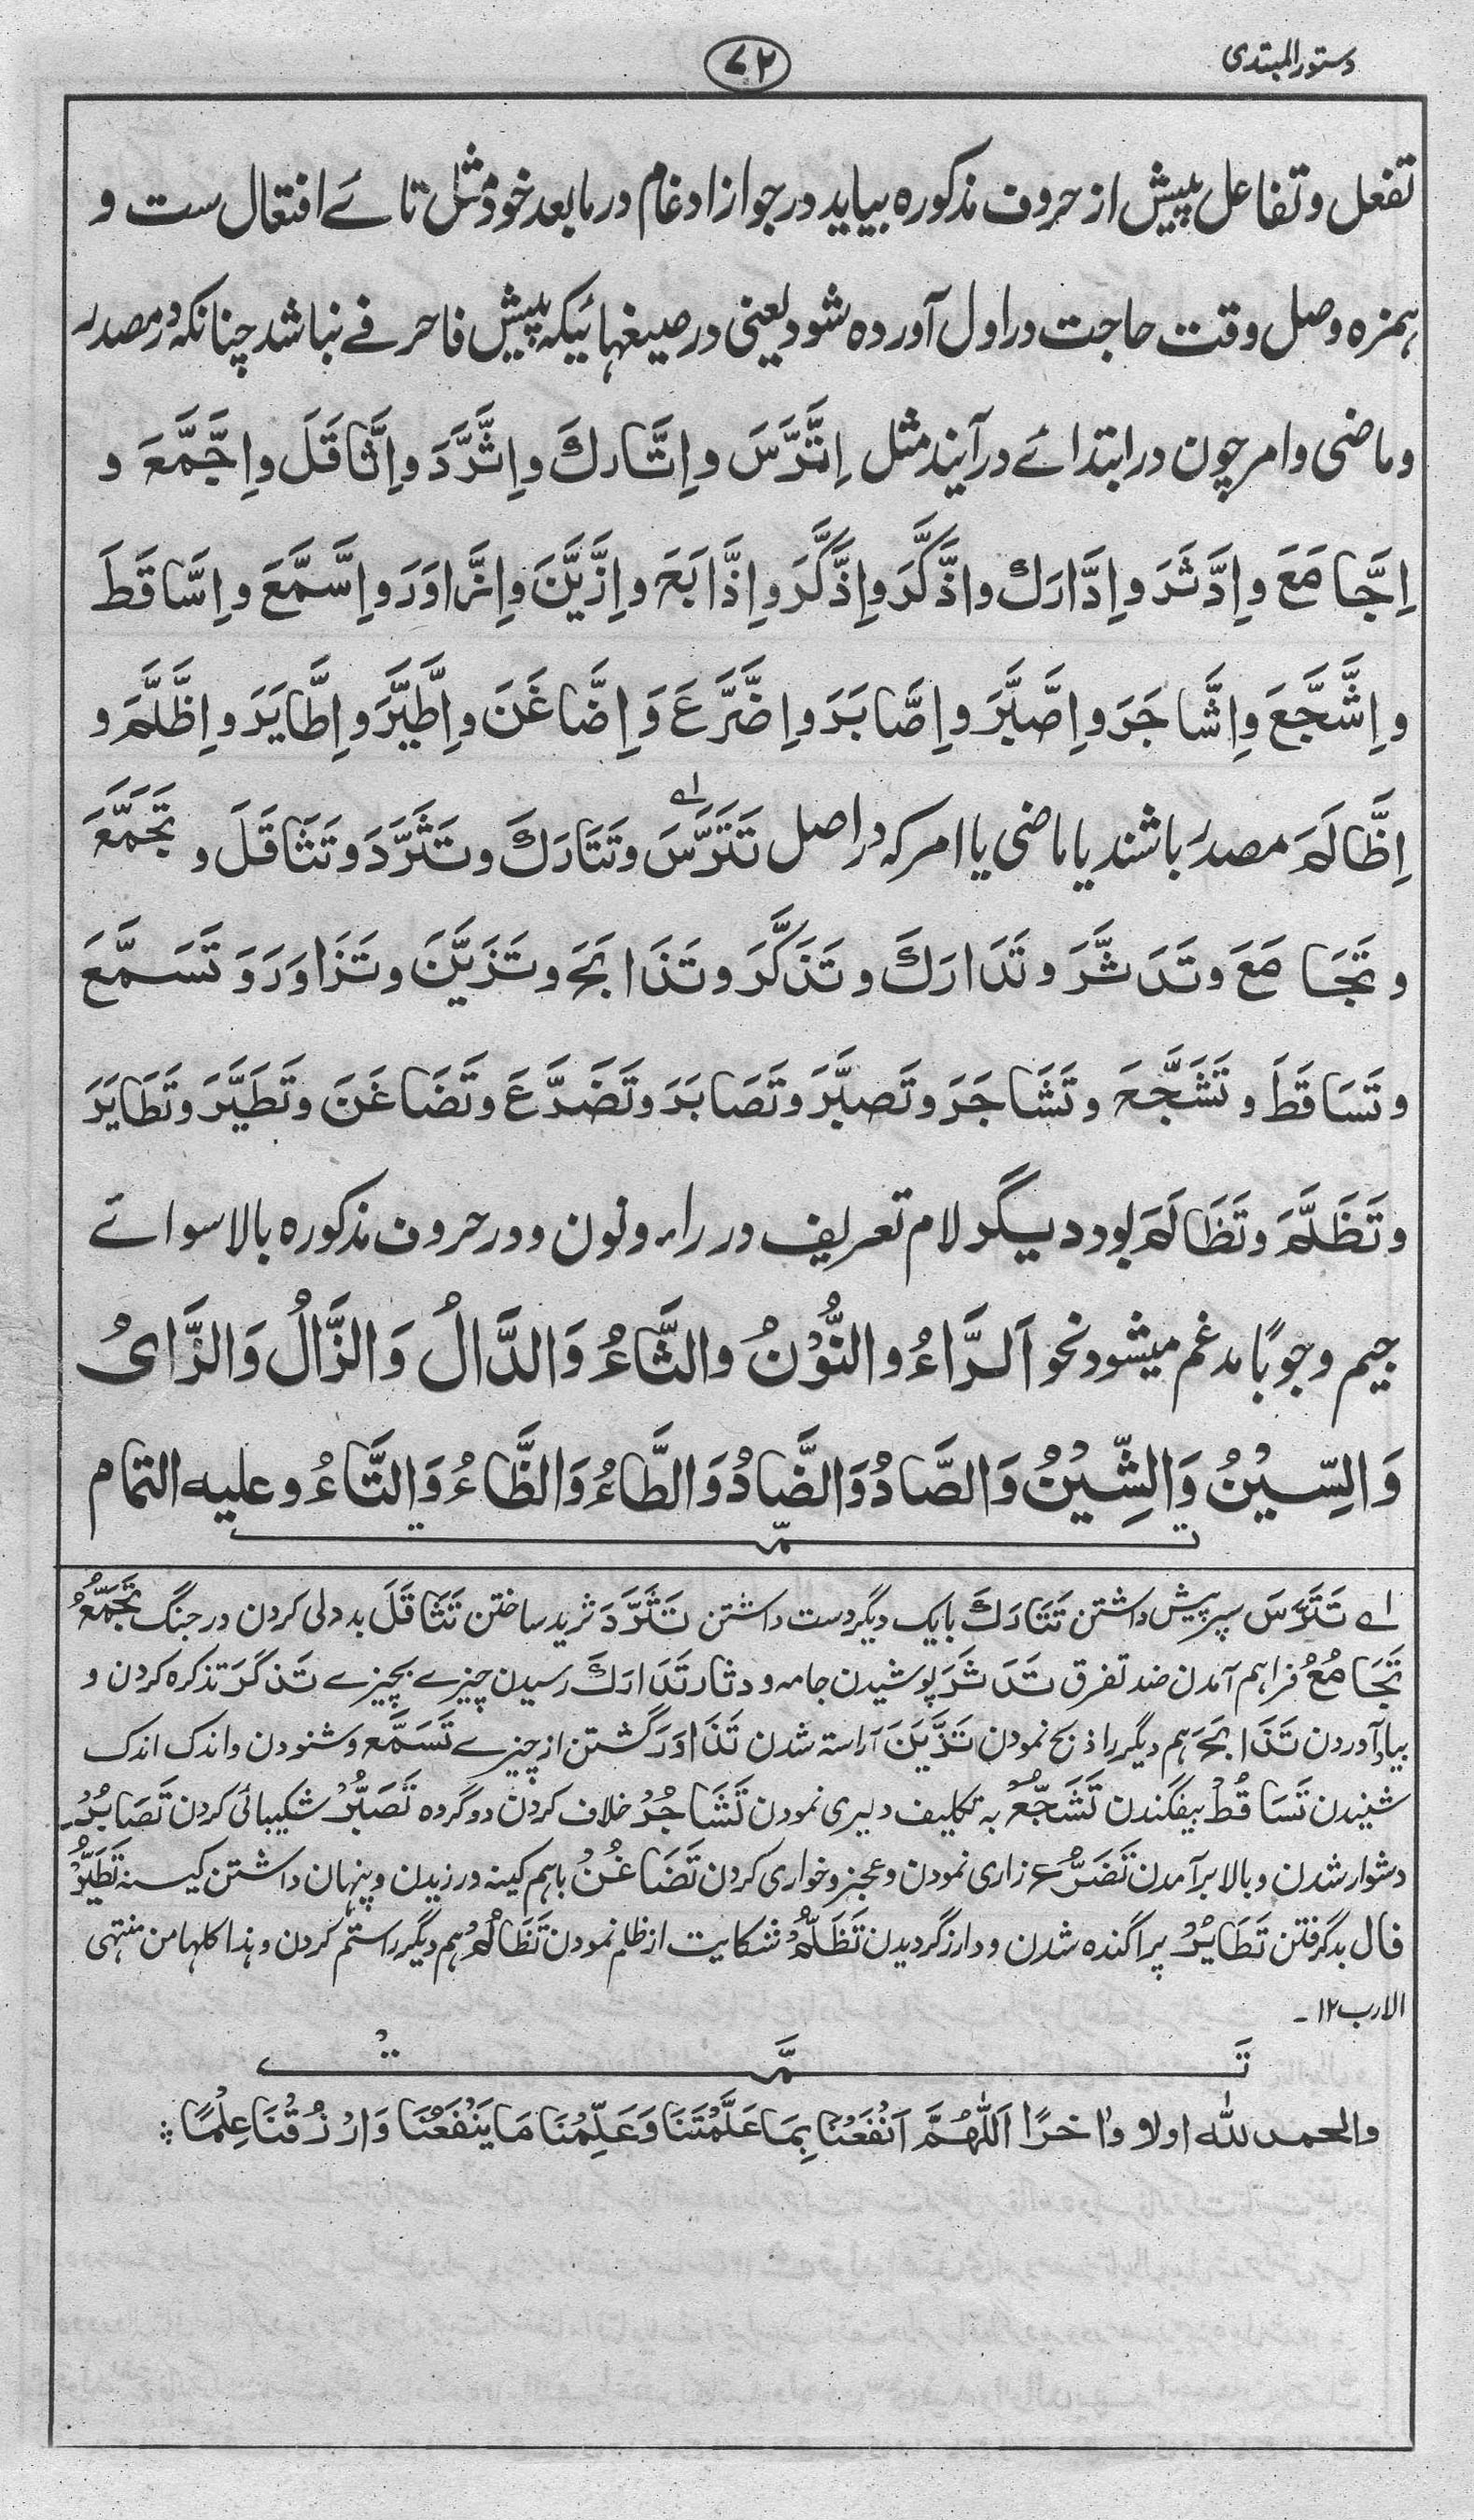 دستور المبتدی
۷۲
تفعل و تفاعل پیش از حروف مذکوره بیاید در جواز ادغام در ما بعد خود مثل تائے افتعال ست و
ہمزہ وصل وقت حاجت در اول آورده شود یعنی در صیغہائیکہ پیش فا حرفے نباشد چنانکہ در مصدر
و ماضی و امر چون در ابتدائے در آیند مثل اِتَّرَّسَ و اِتَّارَكَ و اِثَّرَّدَ و اِثَّاقَلَ و اِجَّمَّعَ و
اِجَّامَعَ و اِدَّثَّرَ و اِدَّارَكَ و اذَّكَّرَ و اِذَّكَّرَ و اِذَّابَعَ و اِزَّيَّنَ و اِزَّاوَرَ و اِسَّمَّعَ و اِسَّاقَطَ
و اِشَّجَّعَ و اِشَّاجَرَ و اِصَّبَّرَ و اِصَّابَرَ و اِضَّرَّعَ وَ اِضَّاغَنَ و اِطَّيَّرَ و اِطَّايَرَ و اِظَّلَّمَ و
اِظَّالَمَ مصدر باشند یا ماضی یا امر کہ در اصل تَتَرَّسَ اے و تَتَارَكَ و تَثَرَّدَ و تَثَاقَلَ و تَجَمَّعَ
و تَجَامَعَ و تَدَثَّرَ و تَدَارَكَ و تَذَكَّرَ و تَذَابَحَ و تَزَيَّنَ و تَزَاوَرَ وَ تَسَمَّعَ
و تَسَاقَطَ و تَشَجَّعَ و تَشَاجَرَ و تَصَبَّرَ و تَصَابَرَ و تَضَرَّعَ و تَضَاغَنَ و تَطَيَّرَ و تَطَايَرَ
و تَظَلَّمَ و تَظَالَمَ بود دیگر لام تعریف در راء و نون و در حروف مذکوره بالا سوائے
جیم وجوبًا مدغم میشود نحو اَلرَّاءُ و النُّوْنُ والثَّاءُ وَالدَّالُ وَالذَّالُ وَالزَّایُ
وَالسِّيْنُ وَالشِّيْنُ وَالصَّادُ وَالضَّادُ وَالطَّاءُ وَالظَّاءُ وَالتَّاءُ و علیہ التمام
تمّت
اے تَتَرَّسَ سپر پیش داشتن تَتَارَكَ بایک دیگر دست داشتن تَثَرَّدَ ثرید ساختن تَثَاقَلَ بددلی کردن در جنگ تَجَمُّعُ
تَجَامُعُ فراہم آمدن ضد تفرق تَدَثَّرَ پوشیدن جامہ و دثار تَدَارَكَ رسیدن چیزے بچیزے تَذَكَّرَ تذکرہ کردن و
بیاد آوردن تَذَابَحَ ہم دیگر را ذبح نمودن تَزَيَّنَ آراستہ شدن تَزَاوَرَ گشتن از چیزے تَسَمَّعَ و شنودن و اندک اندک
شنیدن تَسَاقُطُ بیفگندن تَشَجُّعُ بہ تکلیف دلیری نمودن تَشَاجُرُ خلاف کردن دو گروہ تَصَبُّرُ شکیبائی کردن تَصَابُرُ۔
دشوار شدن و بالا برآمدن تَضَرُّع زاری نمودن و عجز و خواری کردن تَضَاغُنُ باہم کینہ ورزیدن و پنہان داشتن کیسنہ تَطَيُّرُ
فال بد گرفتن تَطَايُرُ پراگندہ شدن و دراز گردیدن تَظَلُّمُ شکایت از ظلم نمودن تَظَالُمُ ہم دیگر را ستم کردن و ہذا کلہا من منتہی
الارب ۱۲۔
تَمَّتْ
والحمد للّٰہ اولا واٰخرًا اَللّٰهُمَّ اَنْفَعْنَا بِمَا عَلَّمْتَنَا وَعَلِّمْنَا مَا يَنْفَعُنَا وَارْزُقْنَا عِلْمًا